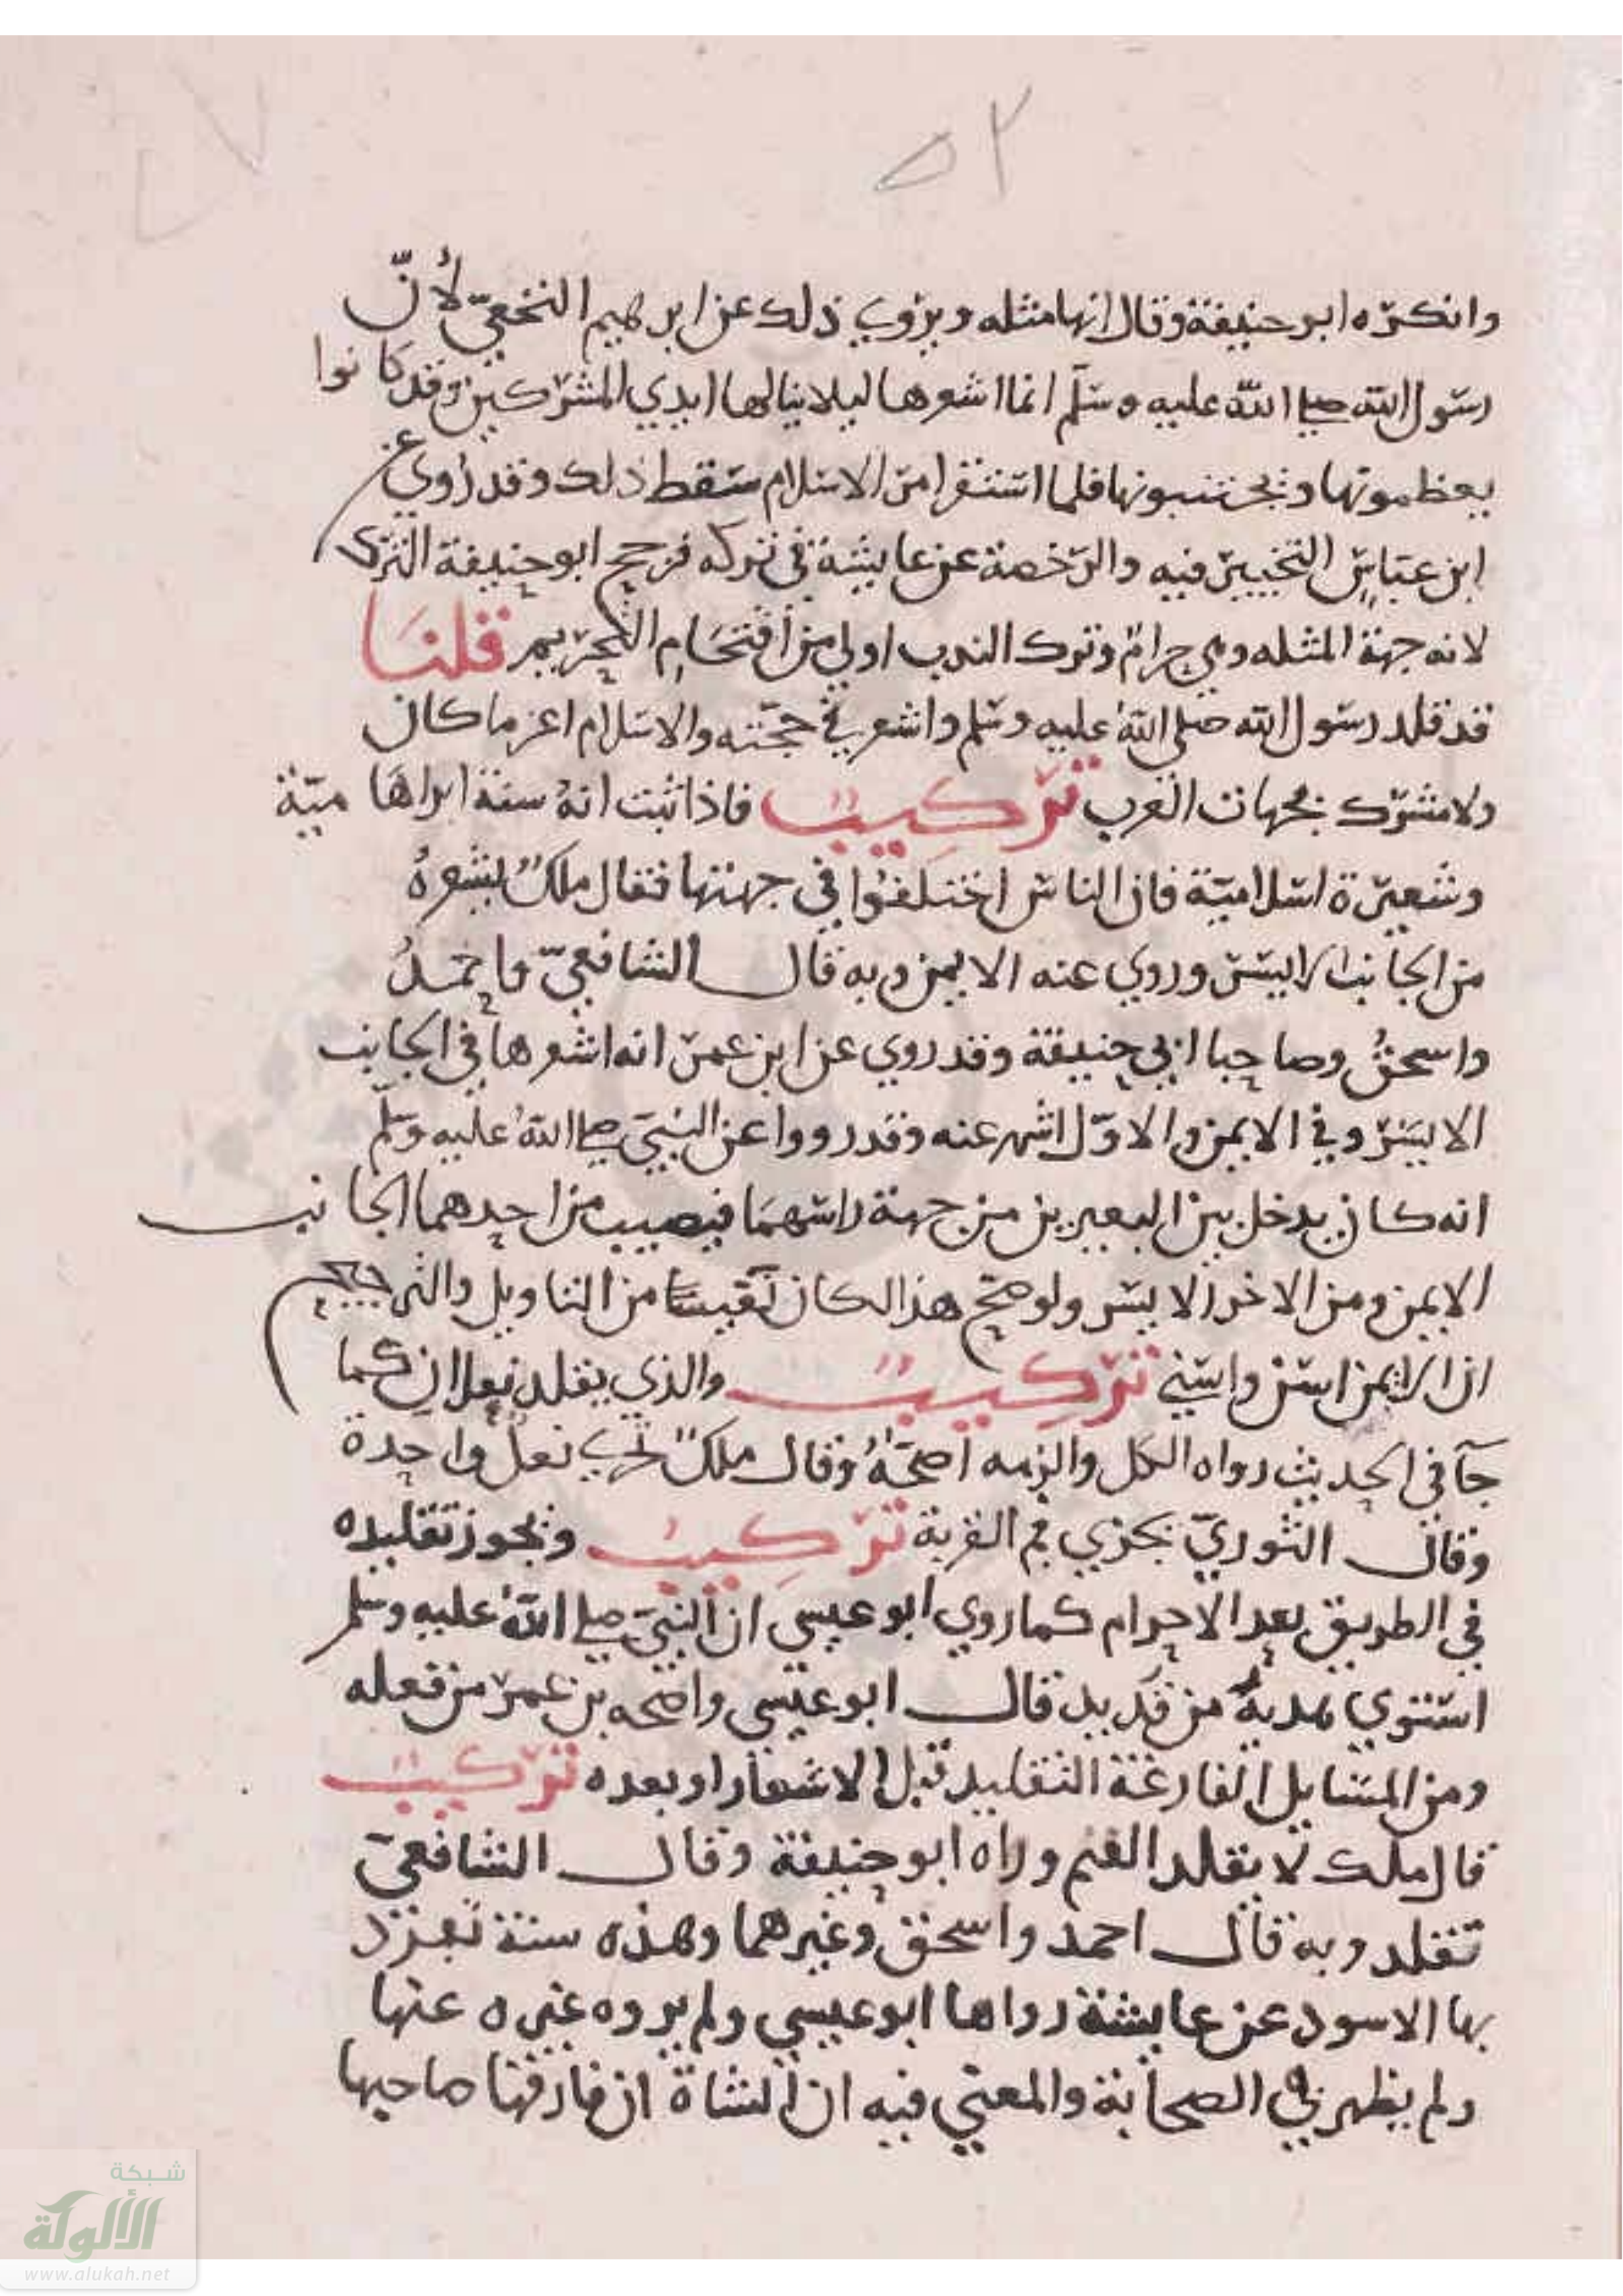 ٥٢
وانكره ابو حنيفة وقال انها مثله ويروي ذلك عن ابرهيم النخعيّ لأنّ
رسول الله صلى الله عليه وسلّم انما اشعرها ليلا ينالها ايدي المشركين وقد كانوا
يعظمونها ويجتنبونها فلما استقر امر الاسلام سقط ذلك وقد روي عن
ابن عباس التخيير فيه والرخصة عن عايشة في تركه فرجح ابو حنيفة الترك
لانه جهة المثله وهي حرام وترك الندب اولى من اقتحام التحريم قلنا
قد قلد رسول الله صلى الله عليه وسلم واشعر في حجّته والاسلام اعز ما كان
ولا مشرك بجهات العرب تركيب فاذا ثبت انه سنة ابراهامية
وشعيرة اسلامية فان الناس اختلفوا في جهتها فقال ملك يشعره
من الجانب الايسر وروي عنه الايمن وبه قال الشافعيّ واحمد
واسحق وصاحبا ابي حنيفة وقد روي عن ابن عمر انه اشعرها في الجانب
الايسر وفي الايمن والاوّل اشهر عنه وقد رووا عن النبيّ صلى الله عليه وسلّم
انه كان يدخل بين البعيرين من جهة راسهما فيصيب من احدهما الجانب
الايمن ومن الاخر الايسر ولو صح هذا لكان نفيسا من التاويل والترجيح
ان الايمن اسن واسني تركيب والذي يقلد نعلان كما
جآ في الحديث رواه الكل والزمه اصحابه وقال ملك تجزي نعل واحدة
وقال الثوريّ يجزي فم القربة تركيب ويجوز تقليده
في الطريق بعد الاحرام كما روي ابو عيسى ان النبيّ صلى الله عليه وسلم
استوي بهديه من قديد قال ابو عيسى واصحه بن عمر من فعله
ومن المسايل الفارغة التقليد قبل الاشعار او بعده تركيب
قال ملك لا يقلد الغنم وراه ابو حنيفة وقال الشافعيّ
تقلد وبه قال احمد واسحق وغيرهما وهذه سنة تفرد
بها الاسود عن عايشة رواها ابو عيسي ولم يروه غيره عنها
ولم يظهر في الصحابة والمعني فيه ان الشاة ان فارقها صاحبها
شبكة
الألوكة
www.alukah.net